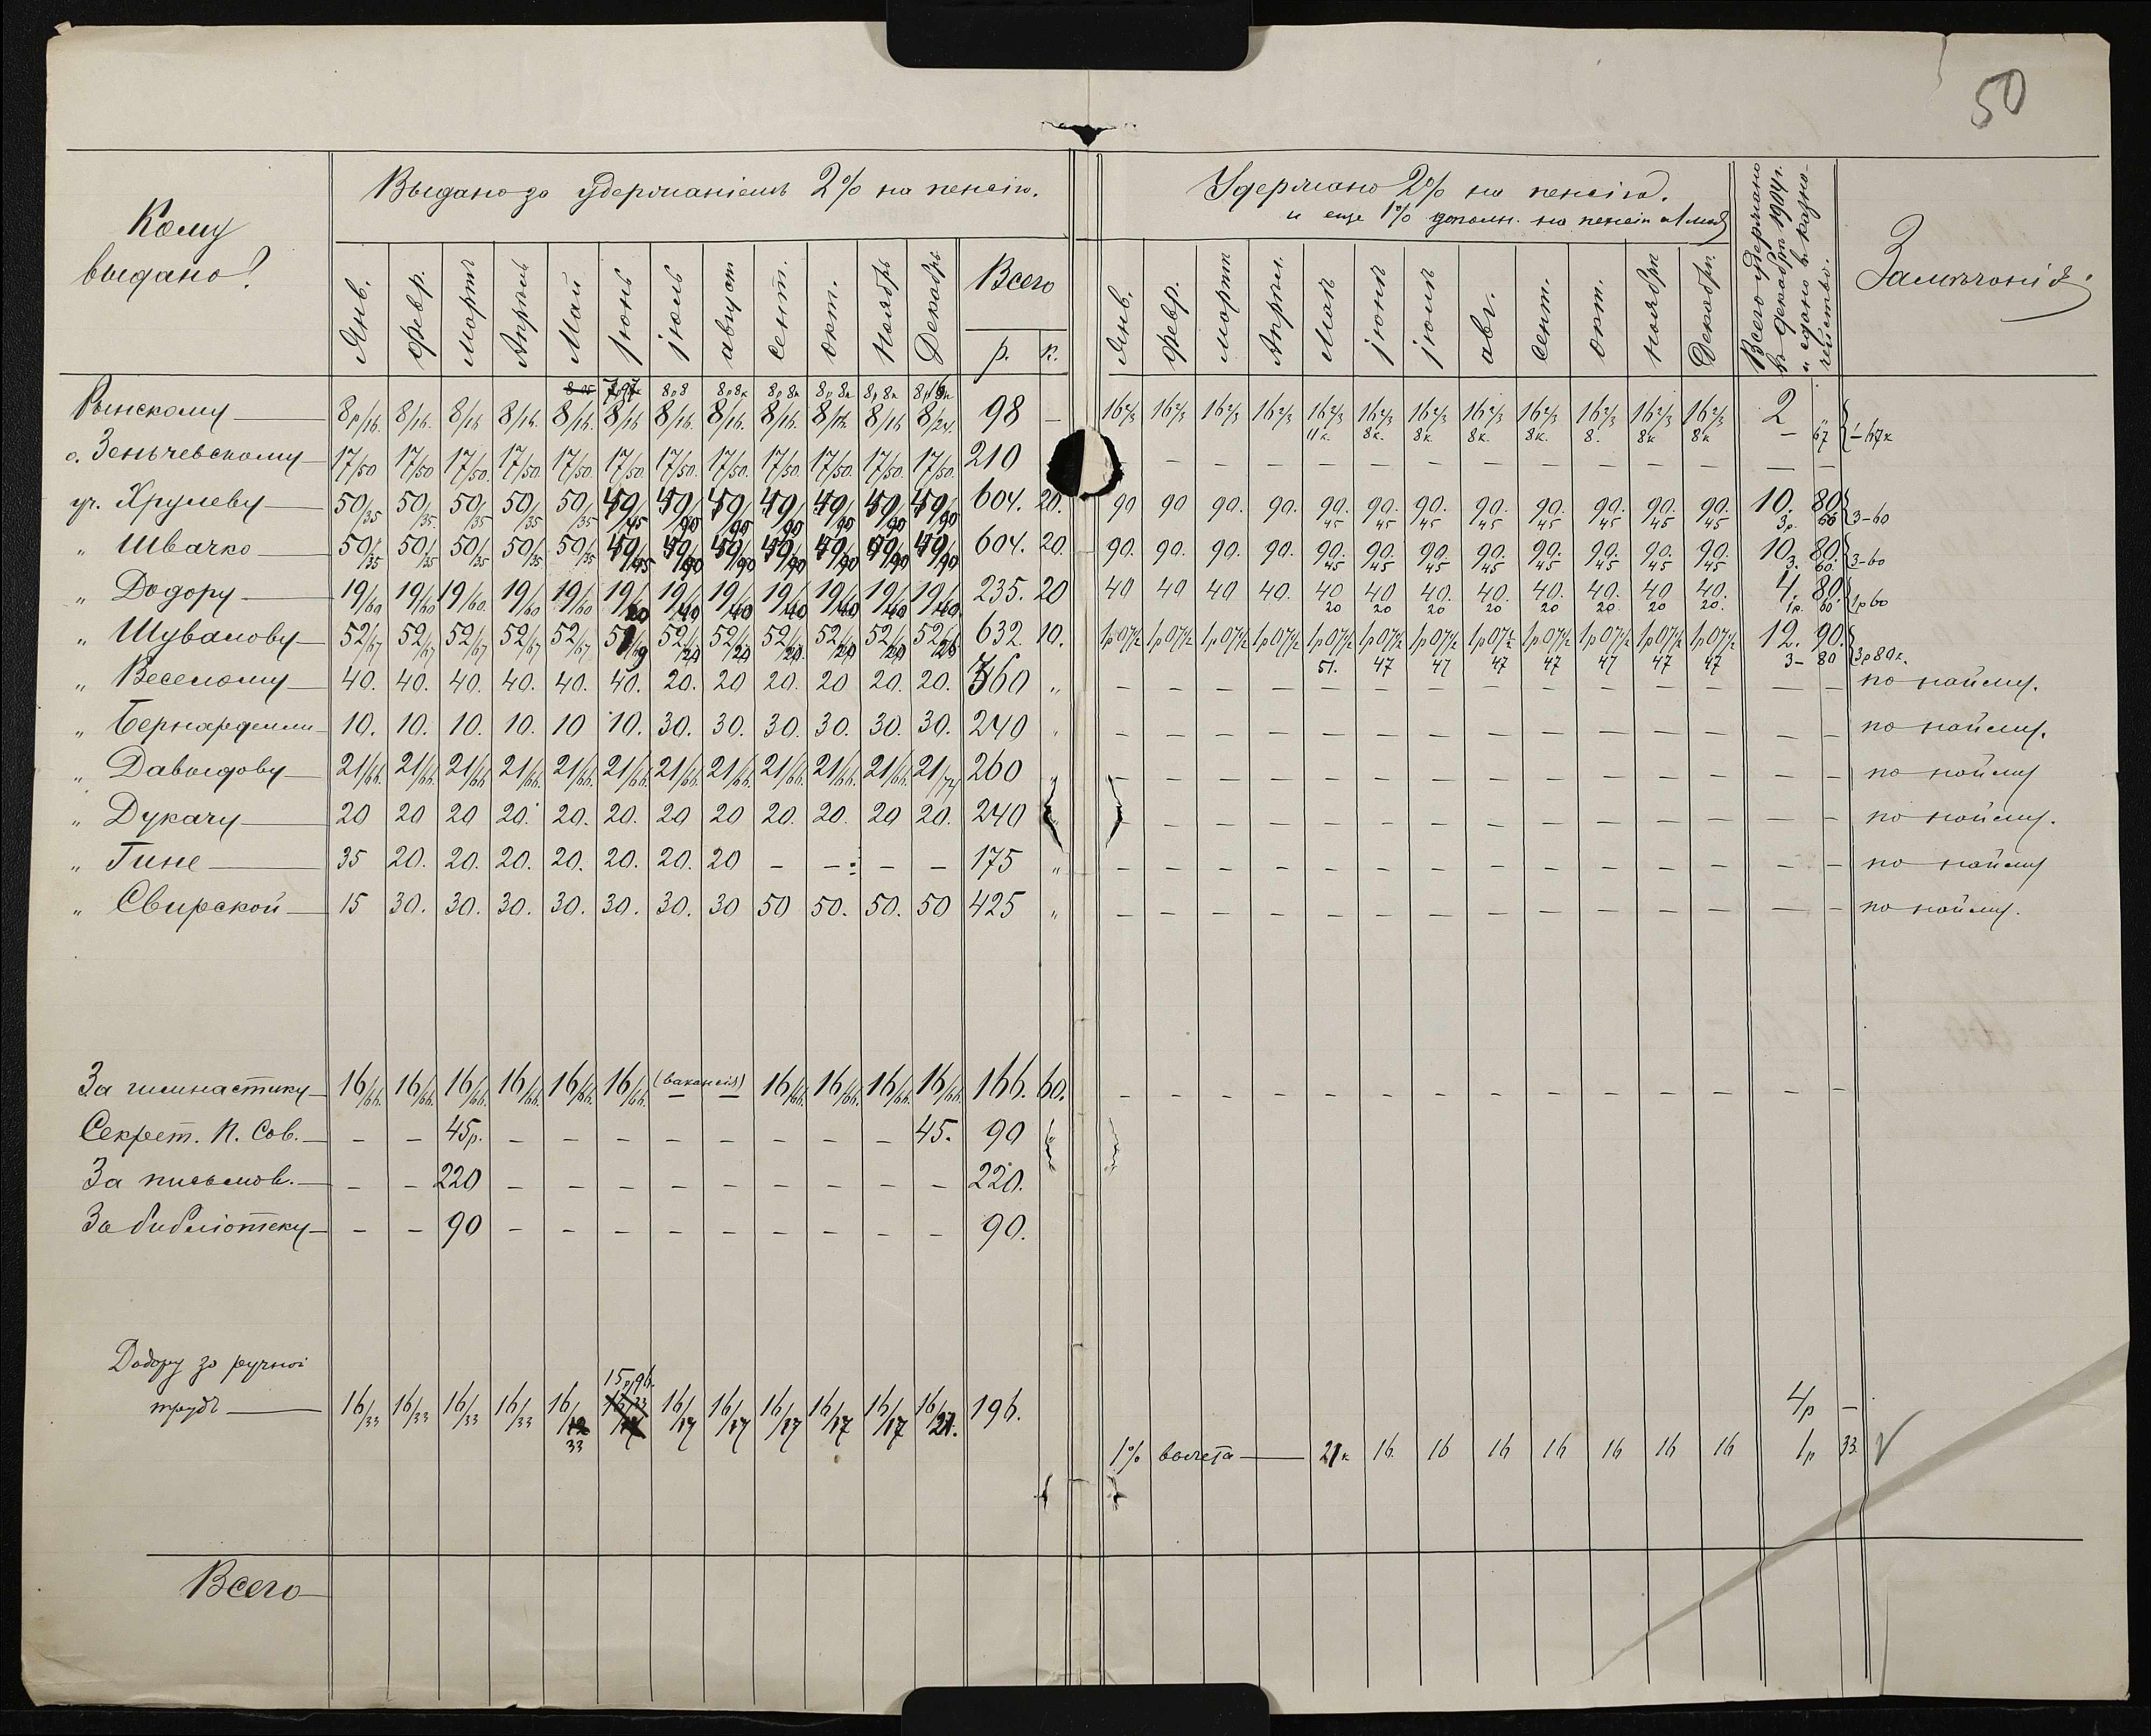 50
Кому выдано?
Выдано за удержаніемъ 2% на пенсію.
Удержано 2% на пенсію.
и еще 1% дополн. на пенсію
Всего удержано
къ декабрю 1904 г.
и сдано въ казна-
чейство.
Замѣчанія:
Янв. Февр. Мартъ Апрѣль Май Іюнь Іюль Августъ Сент. Окт. Ноябрь Декабрь Всего р. к.
Янв. Февр. Мартъ Апрѣл. Май Іюнь Іюль Авг. Сент. Окт. Ноября Декабр.
8р8 8р8к 8р8к 8р8к 8р8к
Рынскому 8р/16. 8/16. 8/16 8/16. 8/16. 8/16 8/16. 8/16. 8/16. 8/16. 8/16 8/24. 98 — 16⅔ 16⅔ 16⅔ 16⅔ 16⅔ 16⅔ 16⅔ 16⅔ 16⅔ 16⅔ 16⅔ 16⅔ 2 "
11к. 8к. 8к. 8к. 8к. 8. 8к 8к — 67
о. Зеньчевскому 17/50 17/50 17/50. 17/50. 17/50. 17/50. 17/50. 17/50. 17/50. 17/50. 17/50. 17/50. 210 — — — — — — — — — — — — —
уч. Хрулеву 50/35 50/35. 50/35 50/35 50/35 49/45 49/90 49/90 49/90 49/90 49/90 49/90 604. 20. 90 90 90. 90. 90. 90. 90. 90. 90. 90. 90. 90. 10. 80
45 45 45 45 45 45 45 45 3р. 60 3-60
" Швачко 50/35 50/35 50/35 50/35 50/35 49/45 49/90 49/90 49/90 49/90 49/90 49/90 604. 20. 90. 90. 90. 90. 90. 90. 90. 90. 90. 90. 90. 90. 10. 80.
45 45 45 45 45 45 45 45 3. 60. 3-60
" Додору 19/60 19/60 19/60. 19/60 19/60 19/20 19/40 19/40 19/40 19/40 19/40 19/40 235. 20 40 40 40 40. 40 40 40. 40. 40. 40. 40 40. 4. 80
20 20 20 20 20 20. 20 20. 1р. 60 1р60
" Шувалову 52/67 52/67 52/67 52/67 52/67 51/69 52/20 52/20 52/20 52/20 52/20 632. 10. 1р07½ 1р07½ 1р07½ 1р07½ 1р07½ 1р07½ 1р07½ 1р07½ 1р07½ 1р07½ 1р07½ 1р07½ 12. 90.
51. 47 47 47 47 47 47 47 3- 80 3р80к.
" Веселому 40. 40. 40. 40. 40. 40. 20. 20 20. 20 20. 20. 360 " — — — — — — — — — — — — — — по найму.
" 10. 10. 10. 10. 10 10. 30. 30. 30. 30. 30. 30. 240 — — — — — — — — — — — — — — по найму.
" Давыдову 21/66. 21/66. 21/66 21/66. 21/66. 21/66. 21/66. 21/66. 21/66. 21/66. 21/66. 21/74 260 — — — — — — — — — — — — — — по найму
" Дукачу 20 20 20 20. 20. 20. 20 20 20. 20. 20 20. 240 — — — — — — — — — — — — — — по найму.
" Гине 35 20. 20. 20. 20. 20. 20. 20 — — — — 175 " — — — — — — — — — — — — — — по найму
" Свирской 15 30. 30. 30. 30. 30. 30. 30 50 50. 50. 50 425 " — — — — — — — — — — — — — — по найму.
За гимнастику 16/66. 16/66. 16/66. 16/66. 16/66. 16/66. (вакансія) — — 16/66. 16/66. 16/66. 16/66. 166. 60. — — — — — — — — — — — — — —
Секрет. П. Сов. — — 45р. — — — — — — — — 45. 90
За письмов. — — 220 — — — — — — — — — 220.
За библіотеку — — 90 — — — — — — — — — 90.
Додору за ручной
15р96.
трудъ 16/33 16/33 16/33 16/33 16/33 16/17 16/17 16/17 16/17 16/17 16/21. 196. 4р —
1% вычета 21к 16. 16 16 16 16 16 16 1р 33.
Всего